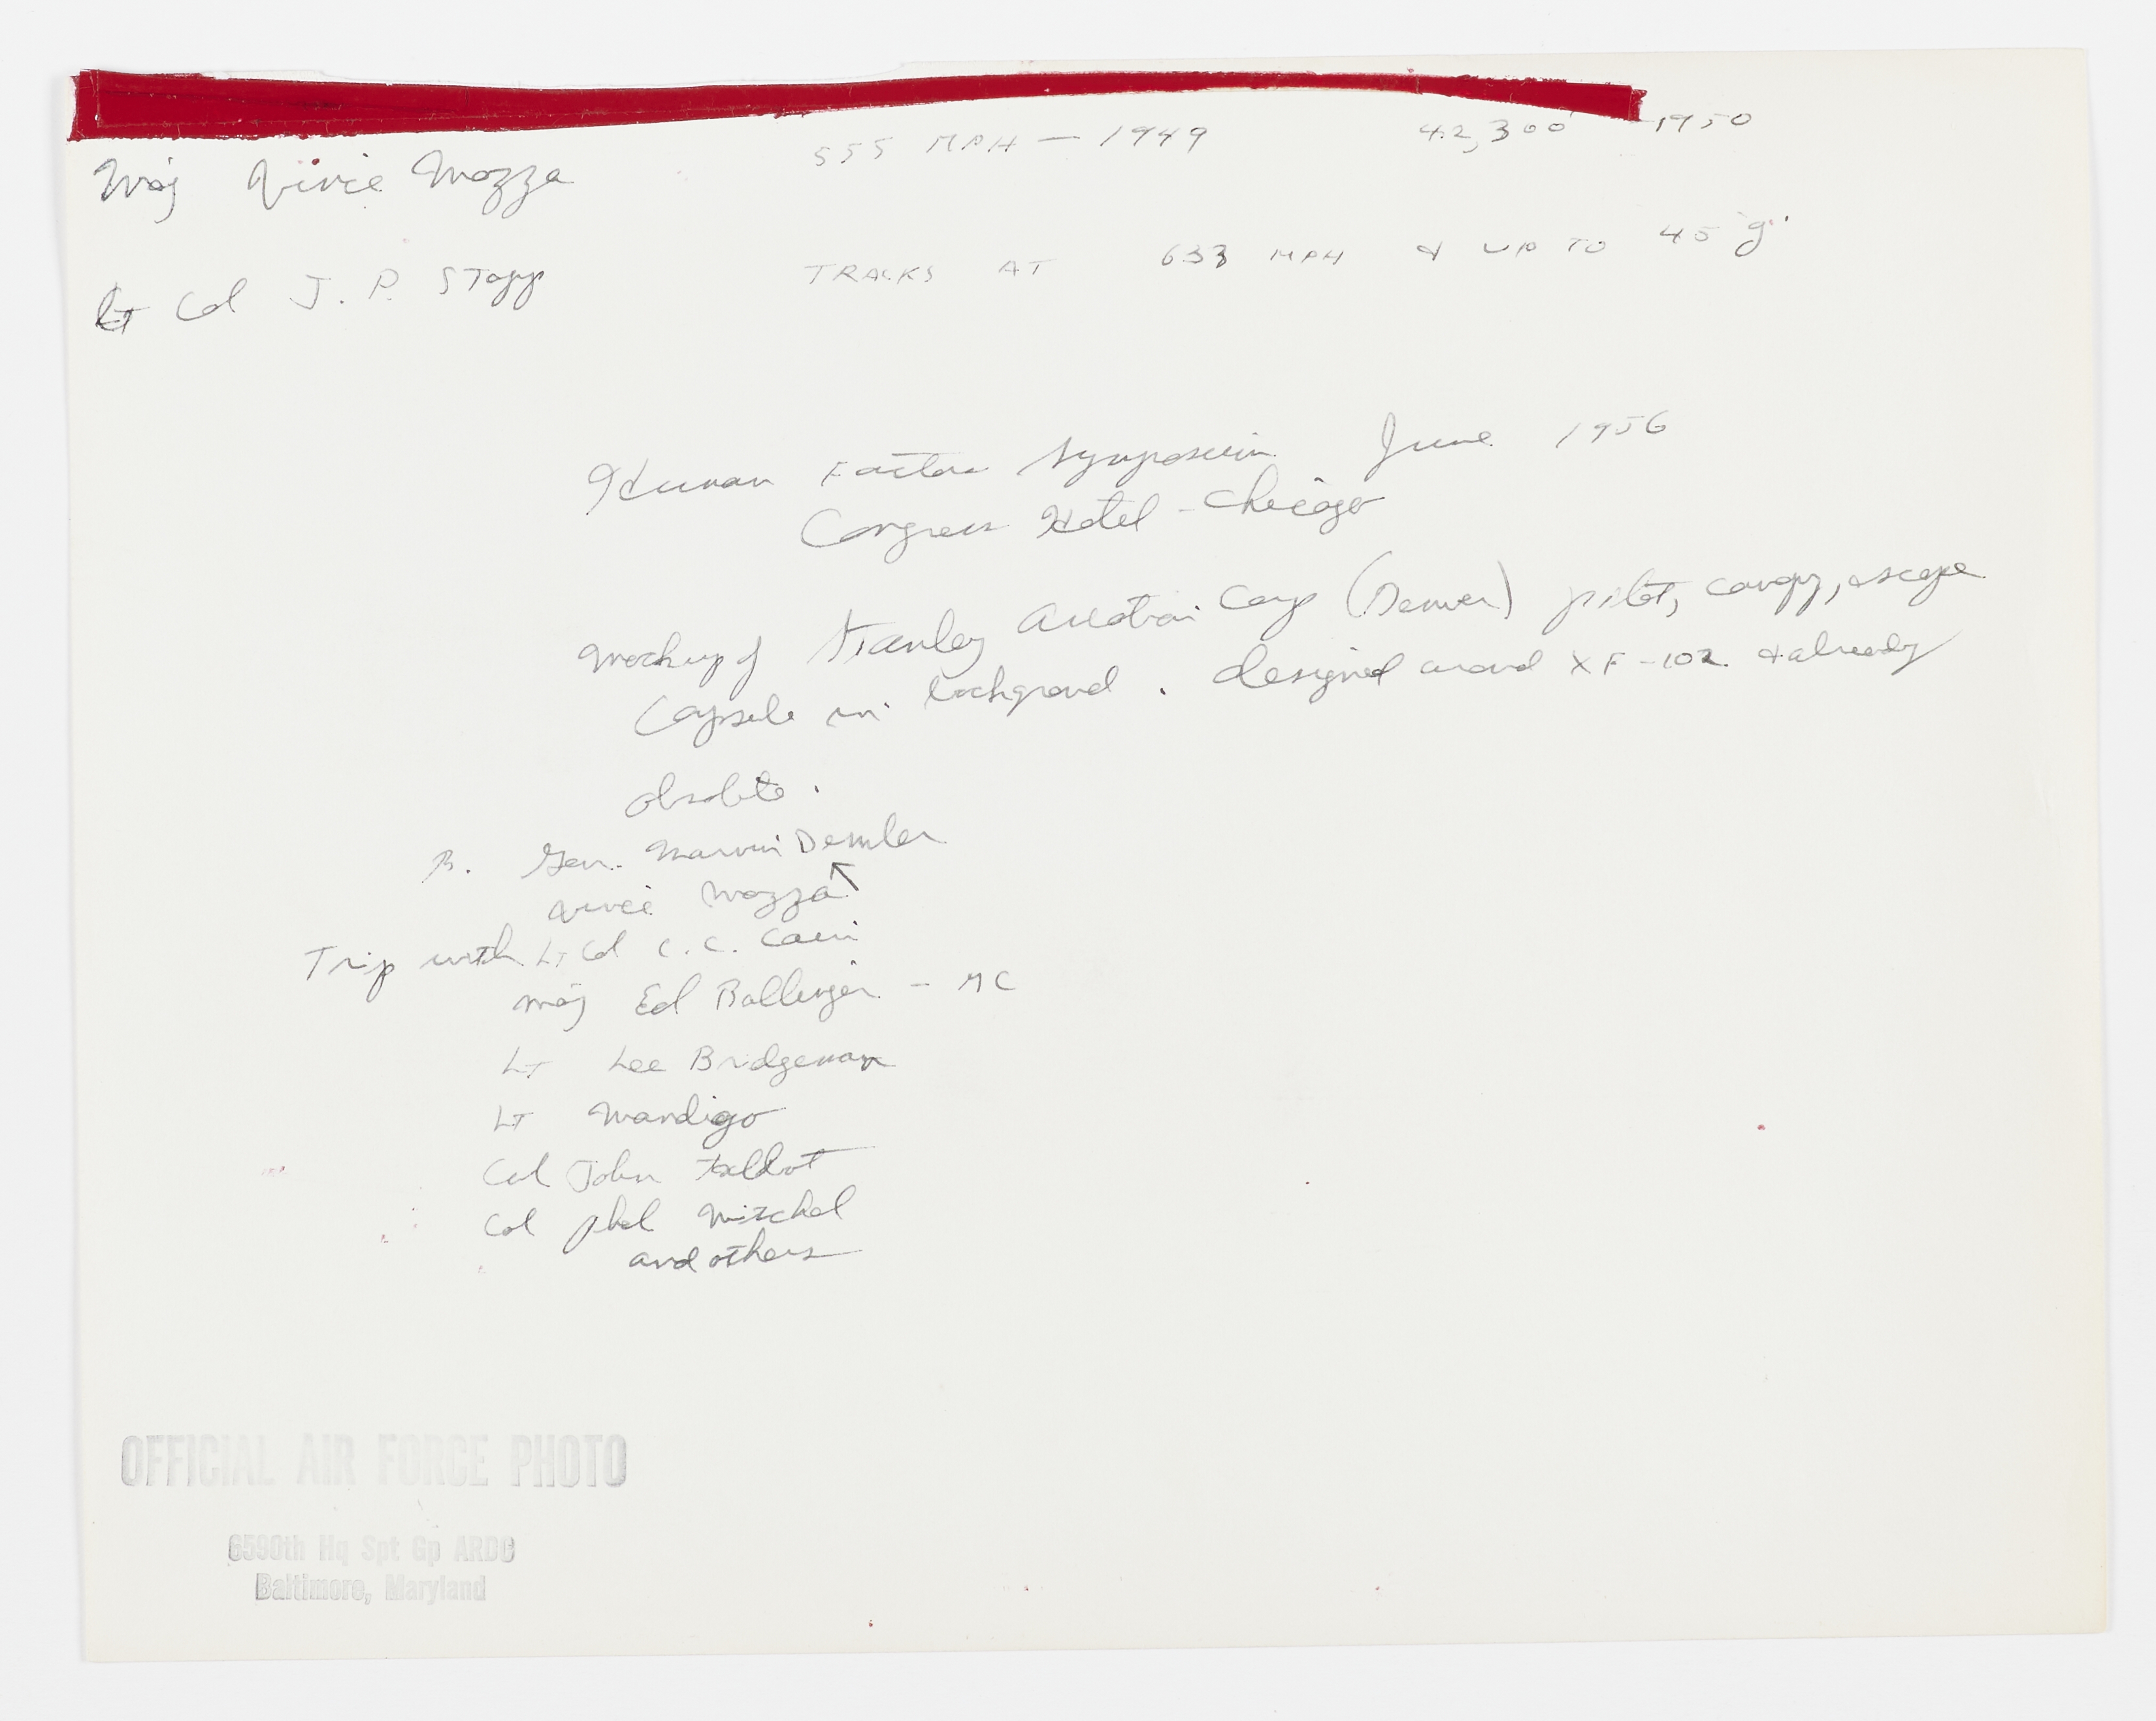 Maj Vince Mazza 555 MPH — 1949 42,300' — 1950
Lt Col J. P. Stapp TRACKS AT 633 MPH & UP TO 45 "g"
Human Factors Symposium June 1956
Congress Hotel - Chicago
Mockup of Stanley Aviation Corp (Denver) pilot, canopy, escape
Capsule in background. designed around XF-102 & already
obsolete.
B. Gen. Marvin Demler
Vince Mazza
Trip with Lt Col C. C. Cain
Maj Ed Ballinger - MC
Lt Lee Bridgeman
Lt Mandigo
Col John Talbot
Col Phil Mitchel
and others
OFFICIAL AIR FORCE PHOTO
6590th Hq Spt Gp ARDC
Baltimore, Maryland